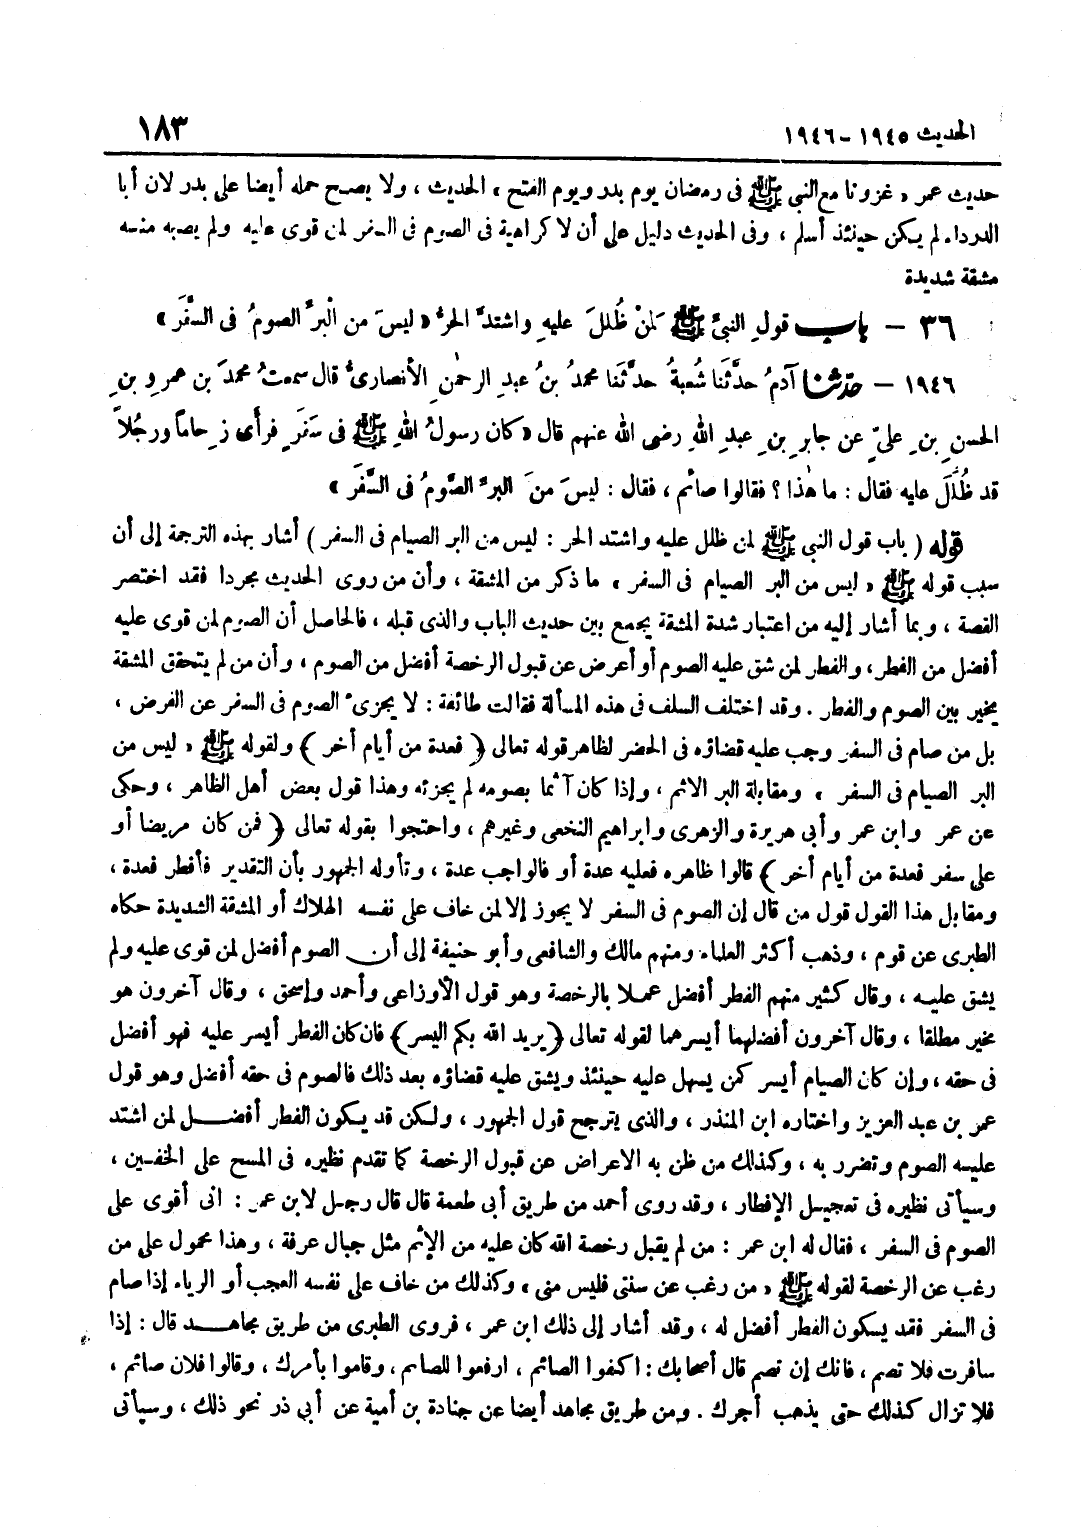 الحديث ١٩٤٥ - ١٩٤٦
١٨٣
حديث عمر « غزونا مع النبي ﷺ فى رمضان يوم بدر ويوم الفتح » الحديث ، ولا يصح حمله أيضا على بدر لان أبا
الدرداء لم يكن حينئذ أسلم ، وفى الحديث دليل على أن لا كراهية فى الصوم فى السفر لمن قوى عليه ولم يصبه منه
مشقة شديدة
٣٦ - باب قولِ النبيِّ ﷺ لمَنْ ظُلِّلَ عليهِ واشتدَّ الحرُّ « ليسَ من الْبرِّ الصومُ فى السَّفَر »
١٩٤٦ - حدّثنا آدمُ حدَّثَنا شُعبةُ حدَّثَنا محمدُ بنُ عبدِ الرحمٰنِ الأنصارىُّ قال سمعتُ محمدَ بن عمرِو بنِ
الحسنِ بنِ علىٍّ عن جابرِ بنِ عبدِ اللهِ رضى الله عنهم قال « كان رسولُ اللهِ ﷺ فى سَفَرٍ فرأى زِحاماً ورجُلاً
قد ظُلِّلَ عليه فقال : ما هٰذا ؟ فقالوا صائم ، فقال : ليسَ منَ البرِّ الصَّومُ فى السَّفَر »
قوله ( باب قول النبي ﷺ لمن ظلل عليه واشتد الحر : ليس من البر الصيام فى السفر ) أشار بهذه الترجمة إلى أن
سبب قوله ﷺ « ليس من البر الصيام فى السفر » ما ذكر من المشقة ، وأن من روى الحديث مجردا فقد اختصر
القصة ، وبما أشار إليه من اعتبار شدة المشقة يجمع بين حديث الباب والذى قبله ، فالحاصل أن الصوم لمن قوى عليه
أفضل من الفطر ، والفطر لمن شق عليه الصوم أو أعرض عن قبول الرخصة أفضل من الصوم ، وأن من لم يتحقق المشقة
يخير بين الصوم والفطر . وقد اختلف السلف فى هذه المسألة فقالت طائفة : لا يجزئ الصوم فى السفر عن الفرض ،
بل من صام فى السفر وجب عليه قضاؤه فى الحضر لظاهر قوله تعالى ﴿ فعدة من أيام أخر ﴾ ولقوله ﷺ « ليس من
البر الصيام فى السفر » ومقابلة البر الاثم ، وإذا كان آثما بصومه لم يجزئه وهذا قول بعض أهل الظاهر ، وحكى
عن عمر وابن عمر وأبى هريرة والزهرى وابراهيم النخعى وغيرهم ، واحتجوا بقوله تعالى ﴿ فمن كان مريضا أو
على سفر فعدة من أيام أخر ﴾ قالوا ظاهره فعليه عدة أو فالواجب عدة ، وتأوله الجمهور بأن التقدير فأفطر فعدة ،
ومقابل هذا القول قول من قال إن الصوم فى السفر لا يجوز إلا لمن خاف على نفسه الهلاك أو المشقة الشديدة حكاه
الطبرى عن قوم ، وذهب أكثر العلماء ومنهم مالك والشافعى وأبو حنيفة إلى أن الصوم أفضل لمن قوى عليه ولم
يشق عليه ، وقال كثير منهم الفطر أفضل عملا بالرخصة وهو قول الأوزاعى وأحمد وإسحق ، وقال آخرون هو
مخير مطلقا ، وقال آخرون أفضلهما أيسرهما لقوله تعالى ﴿ يريد الله بكم اليسر ﴾ فان كان الفطر أيسر عليه فهو أفضل
فى حقه ، وإن كان الصيام أيسر كمن يسهل عليه حينئذ ويشق عليه قضاؤه بعد ذلك فالصوم فى حقه أفضل وهو قول
عمر بن عبد العزيز واختاره ابن المنذر ، والذى يترجح قول الجمهور ، ولكن قد يكون الفطر أفضل لمن اشتد
عليه الصوم وتضرر به ، وكذلك من ظن به الاعراض عن قبول الرخصة كما تقدم نظيره فى المسح على الخفين ،
وسيأتى نظيره فى تعجيل الإفطار ، وقد روى أحمد من طريق أبى طعمة قال قال رجل لابن عمر : انى أقوى على
الصوم فى السفر ، فقال له ابن عمر : من لم يقبل رخصة الله كان عليه من الإثم مثل جبال عرفة ، وهذا محمول على من
رغب عن الرخصة لقوله ﷺ « من رغب عن سنتى فليس منى » وكذلك من خاف على نفسه العجب أو الرياء إذا صام
فى السفر فقد يكون الفطر أفضل له ، وقد أشار إلى ذلك ابن عمر ، فروى الطبرى من طريق مجاهد قال : إذا
سافرت فلا تصم ، فانك إن تصم قال أصحابك : اكفوا الصائم ، ارفعوا للصائم ، وقاموا بأمرك ، وقالوا فلان صائم ،
فلا تزال كذلك حتى يذهب أجرك . ومن طريق مجاهد أيضا عن جنادة بن أمية عن أبى ذر نحو ذلك ، وسيأتى